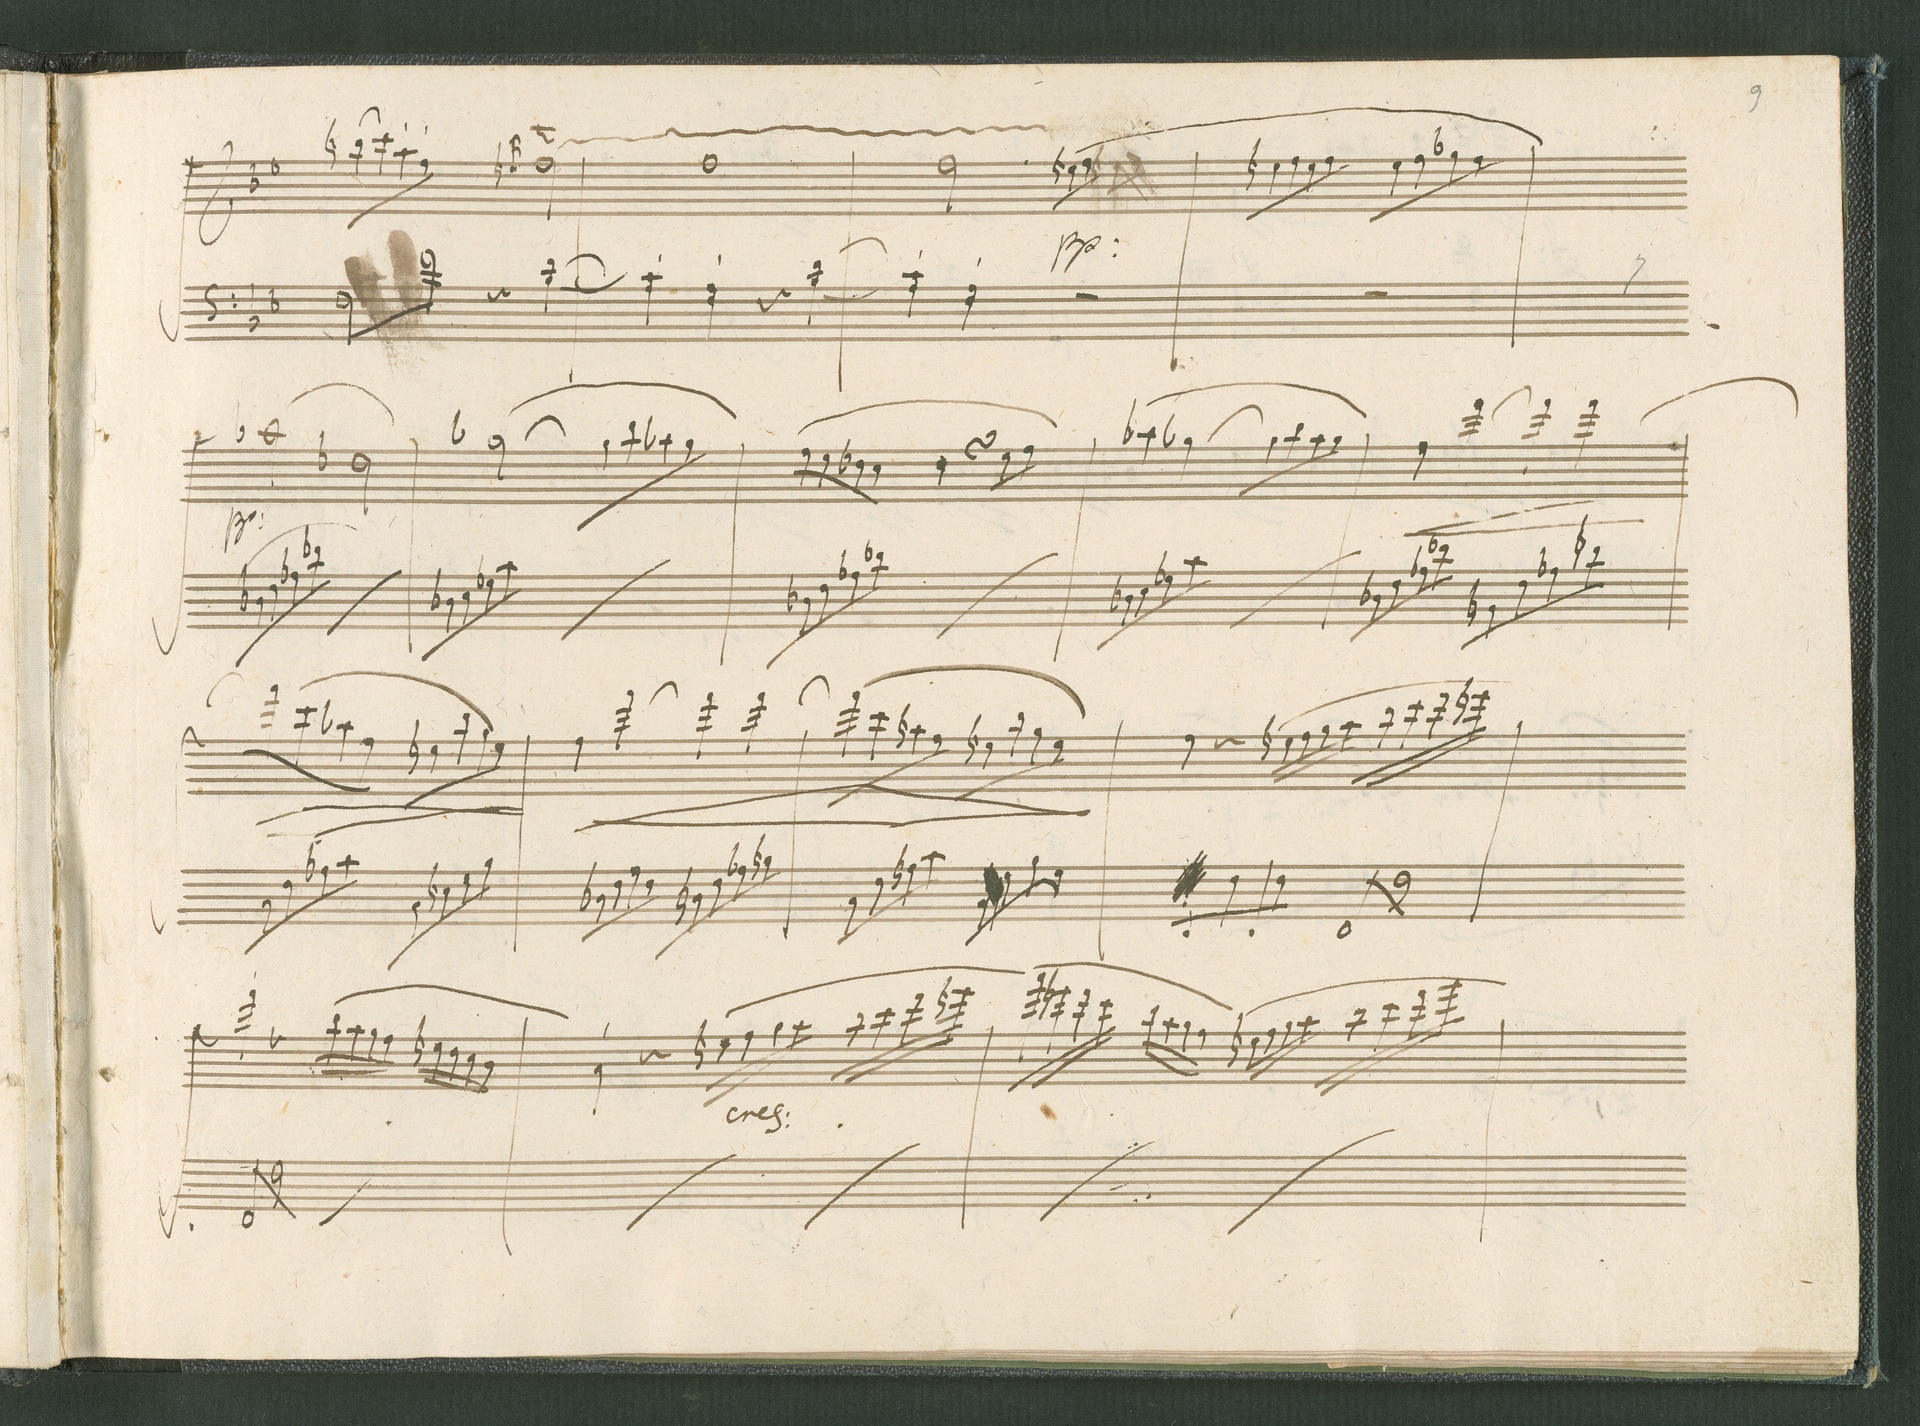 9
pp:
pp:
cres: